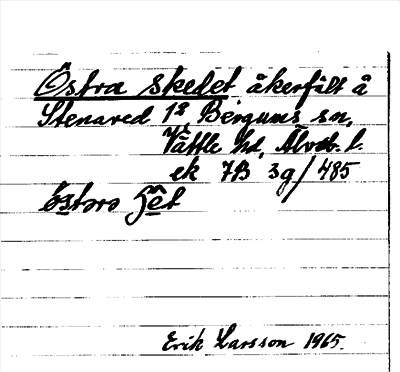 Östra Skedet, åkerfält å
Stenared 1⁹, Bergums sn,
Vättle hd, Älvsb. l.
ek 7B 3g/485
östərə ʃêt
Erik Larsson 1965.